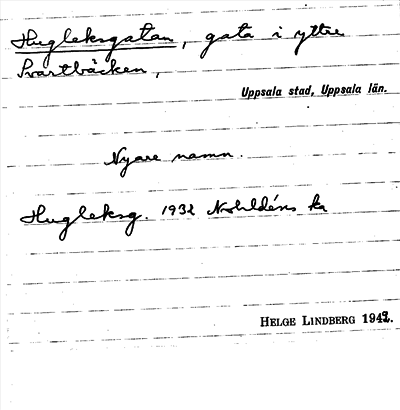 Hugleksgatan, gata i yttre
Svartbäcken,
Uppsala stad, Uppsala län.
Nyare namn.
Hugleksg. 1932 ka
HELGE LINDBERG 1942.